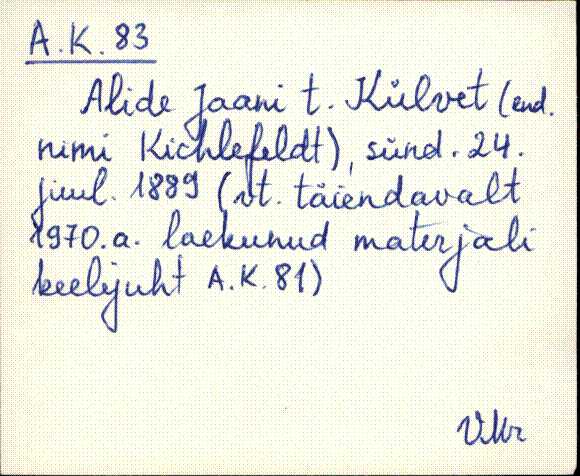 A.K. 83
Alide Jaani t. Külvet (end.
nimi Kichlefeldt), sünd. 24.
juul. 1889 (vt. täiendavalt
1970.a. laekunud materjali
keelijuht A.K. 81)